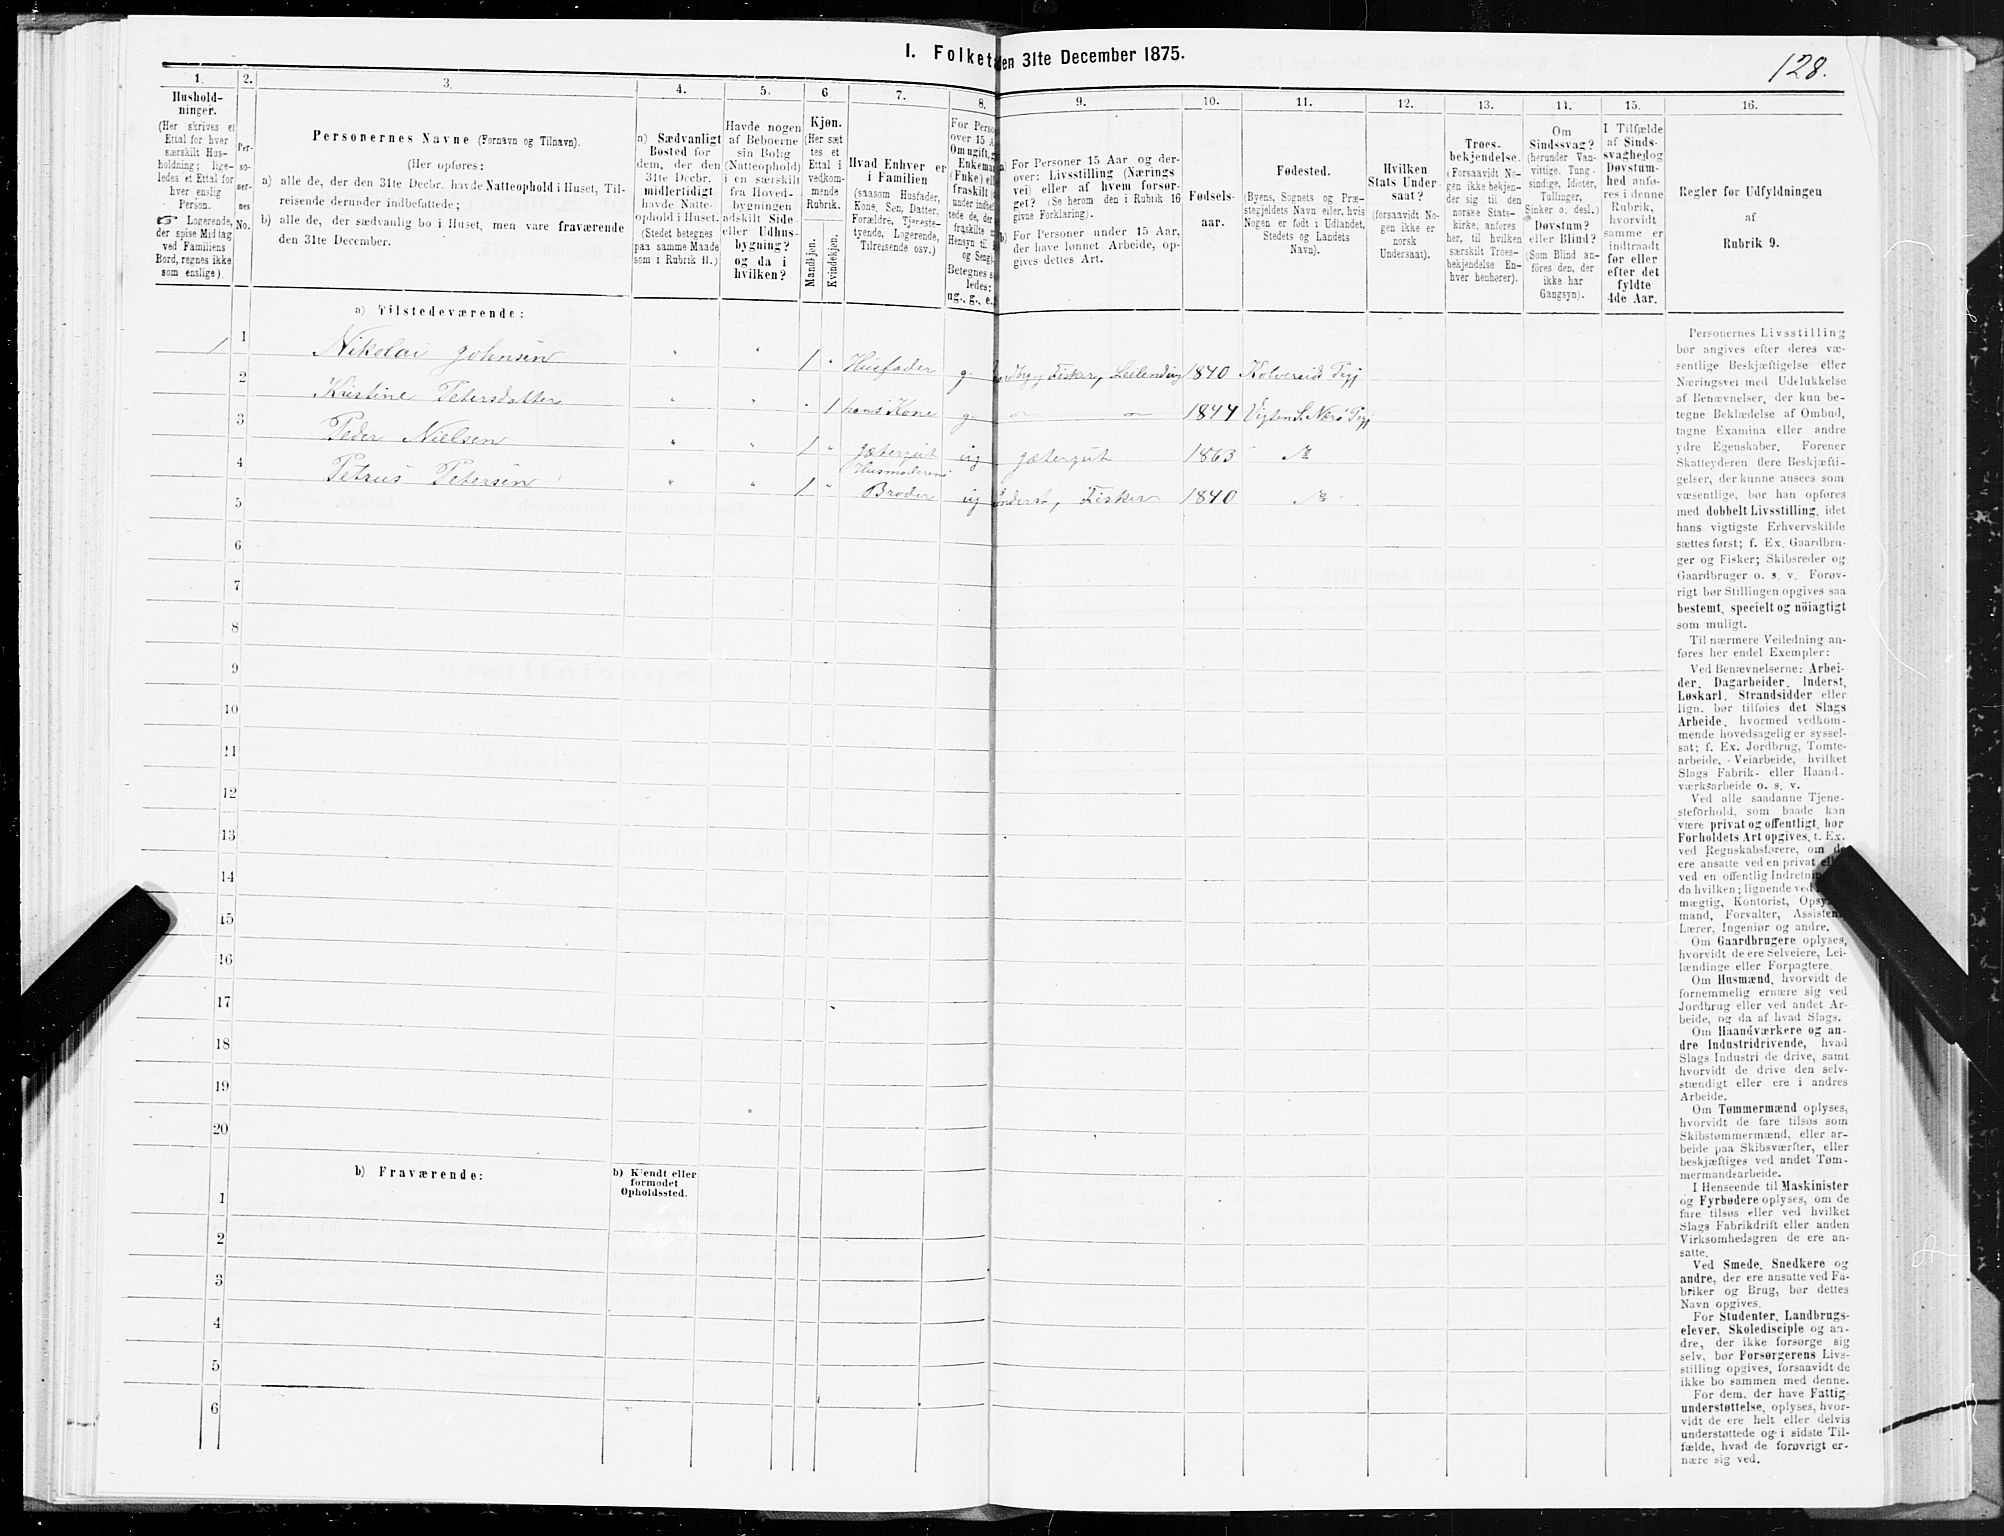 I. Folketa en 31te December 1875.
128.
1.
2.
3.
4.
5.
6
7.
8.
9.
10.
11.
12.
13.
14.
15.
16.
Hushold-
ninger.
(Her skrives et
Ettal for hver
særskilt Hus-
holdning; lige-
ledes et Ettal for
hver enslig
Person.
☞ Logerende,
der spise Middag
ved Familiens
Bord, regnes ikke
som enslige).
Per-
so-
ner-
nes
No.
Personernes Navne (Fornavn og Tilnavn).
(Her opføres:
a) alle de, der den 31te Decbr. havde Natteophold i Huset, Til-
reisende derunder indbefattede;
b) alle de, der sædvanlig bo i Huset, men vare fraværende
den 31te December.
a) Sædvanligt
Bosted for
dem, der den
31te Decbr.
midlertidigt
havde Natte-
ophold i Huset.
(Stedet betegnes
paa samme Maade
som i Rubrik 11.)
Havde nogen
af Beboerne
sin Bolig
(Natteophold)
i en særskilt
fra Hoved-
bygningen
adskilt Side-
eller Udhus-
bygning?
og da i
hvilken?
Kjøn.
(Her sæt
tes et
Ettal i
vedkom-
mende
Rubrik.
Mandkjøn.
Kvindekjøn.
Hvad Enhver er
i Familien
(saasom Husfader,
Kone, Søn, Datter,
Forældre, Tjeneste-
tyende, Logerende,
Tilreisende osv.)
For Perso
over 15 A
Om ugift, g
Enkeman
(Enke) ell
fraskilt
under indbe
tede de, de
fraskilte
Hensyn til
og Seng
Betegnes s
ledes:
ug., g., e.
a) For Personer 15 Aar og der-
over: Livsstilling (Nærings
vei) eller af hvem forsør-
get? (Se herom den i Rubrik 16
givne Forklaring).
b) For Personer under 15 Aar,
der have lønnet Arbeide, op-
gives dettes Art.
Fødsels-
aar.
Fødested.
(Byens, Sognets og Præ-
stegjeldets Navn eller, hvis
Nogen er født i Udlandet,
Stedets og Landets
Navn).
Hvilken
Stats Under
saat?
(forsaavidt No-
gen ikke er
norsk
Undersaat).
Troes-
bekjendelse.
(Forsaavidt No-
gen ikke bekjen-
der sig til den
norske Stats-
kirke, anføres
her, til hvilken
særskilt Troes-
bekjendelse En-
hver henhører).
Om
Sindssvag?
(herunder Van-
vittige, Tung-
sindige, Idioter,
Tullinger,
Sinker o. desl.)
Døvstum?
eller Blind?
(Som Blind an-
føres den, der
ikke har
Gangsyn).
I Tilfælde
af Sinds-
svaghed og
Døvstum-
hed anfø-
res i denne
Rubrik,
hvorvidt
samme er
indtraadt
før eller
efter det
fyldte
4de Aar.
Regler for Udfyldningen
af
Rubrik 9.
a) Tilstedeværende:
1 1 Nikolai Johnsen " " 1 " Husfader g. Jordbr. og Fisker, Leilending 1840 Kolvereid Prgj
2 Kristine Petersdatter " " · 1 hans Kone g. " " 1844 Vigten S. Nærø Prgj
3 Peder Nielsen " " 1 " gjætergut ug gjætergut 1863 "
4 Petrus Petersen " " 1 " Husmoderens
Broder ug Inderst, Fisker 1840 "
5
6
7
8
9
10
11
12
13
14
15
16
17
18
19
20
b) Fraværende:
b) Kjendt eller
formodet
Opholdssted.
1
2
3
4
5
6
Personernes Livsstilling
bør angives efter deres væ-
sentlige Beskjæftigelse eller
Næringsvei med Udelukkelse
af Benævnelser, der kun be-
tegne Beklædelse af Ombud,
tagne Examina eller andre
ydre Egenskaber. Forener
Skatteyderen flere Beskjæfti-
gelser, der kunne ansees som
væsentlige, bør han opføres
med dobbelt Livsstilling, idet
hans vigtigste Erhvervskilde
sættes først; f. Ex. Gaardbru-
ger og Fisker; Skibsreder og
Gaardbruger o. s. v. Forøv-
rigt bør Stillingen opgives saa
bestemt, specielt og nöiagtigt
som muligt.
Til nærmere Veiledning an-
føres her endel Exempler:
Ved Benævnelserne: Arbei-
der, Dagarbeider, Inderst,
Løskarl, Strandsidder eller
lign. bør tilføies det Slags
Arbeide, hvormed vedkom-
mende hovedsagelig er syssel-
sat; f. Ex. Jordbrug, Tomte-
arbeide, Veiarbeide, hvilket
Slags Fabrik- eller Haand-
værksarbeide o. s. v.
Ved alle saadanne Tjene-
steforhold, som baade kan
være privat og offentligt, bør
Forholdets Art opgives, t. Ex.
ved Regnskabsførere, om de
ere ansatte ved en privat eller
ved en offentlig Indretning
da hvilken; lignende ved
mægtig, Kontorist, Opsyns-
mand, Forvalter, Assistent,
Lærer, Ingeniør og andre.
Om Gaardbrugere oplyses,
hvorvidt de ere Selveiere, Lei-
lændinge eller Forpagtere.
Om Husmænd, hvorvidt de
fornemmelig ernære sig ved
Jordbrug eller ved andet Ar-
beide, og da af hvad Slags.
Om Haandværkere og an-
dre Industridrivende, hvad
Slags Industri de drive, samt
hvorvidt de drive den selv-
stændigt eller ere i andres
Arbeide.
Om Tømmermænd oplyses,
hvorvidt de fare tilsøs som
Skibstømmermænd, eller ar-
beide paa Skibsværfter, eller
beskjæftiges ved andet Tøm-
mermandsarbeide.
I Henseende til Maskinister
og Fyrbødere oplyses, om de
fare tilsøs eller ved hvilket
Slags Fabrikdrift eller anden
Virksomhedsgren de ere an-
satte.
Ved Smede, Snedkere og
andre, der ere ansatte ved Fa-
briker og Brug, bør dettes
Navn opgives.
For Studenter, Landbrugs-
elever, Skoledisciple og an-
dre, der ikke forsørge sig
selv, bør Forsørgerens Livs-
stilling opgives, forsaavidt de
ikke bo sammen med denne.
For dem, der have Fattig-
understøttelse, oplyses, hvor-
vidt de ere helt eller delvis
understøttede og i sidste Til-
fælde, hvad de forøvrigt er-
nære sig ved.